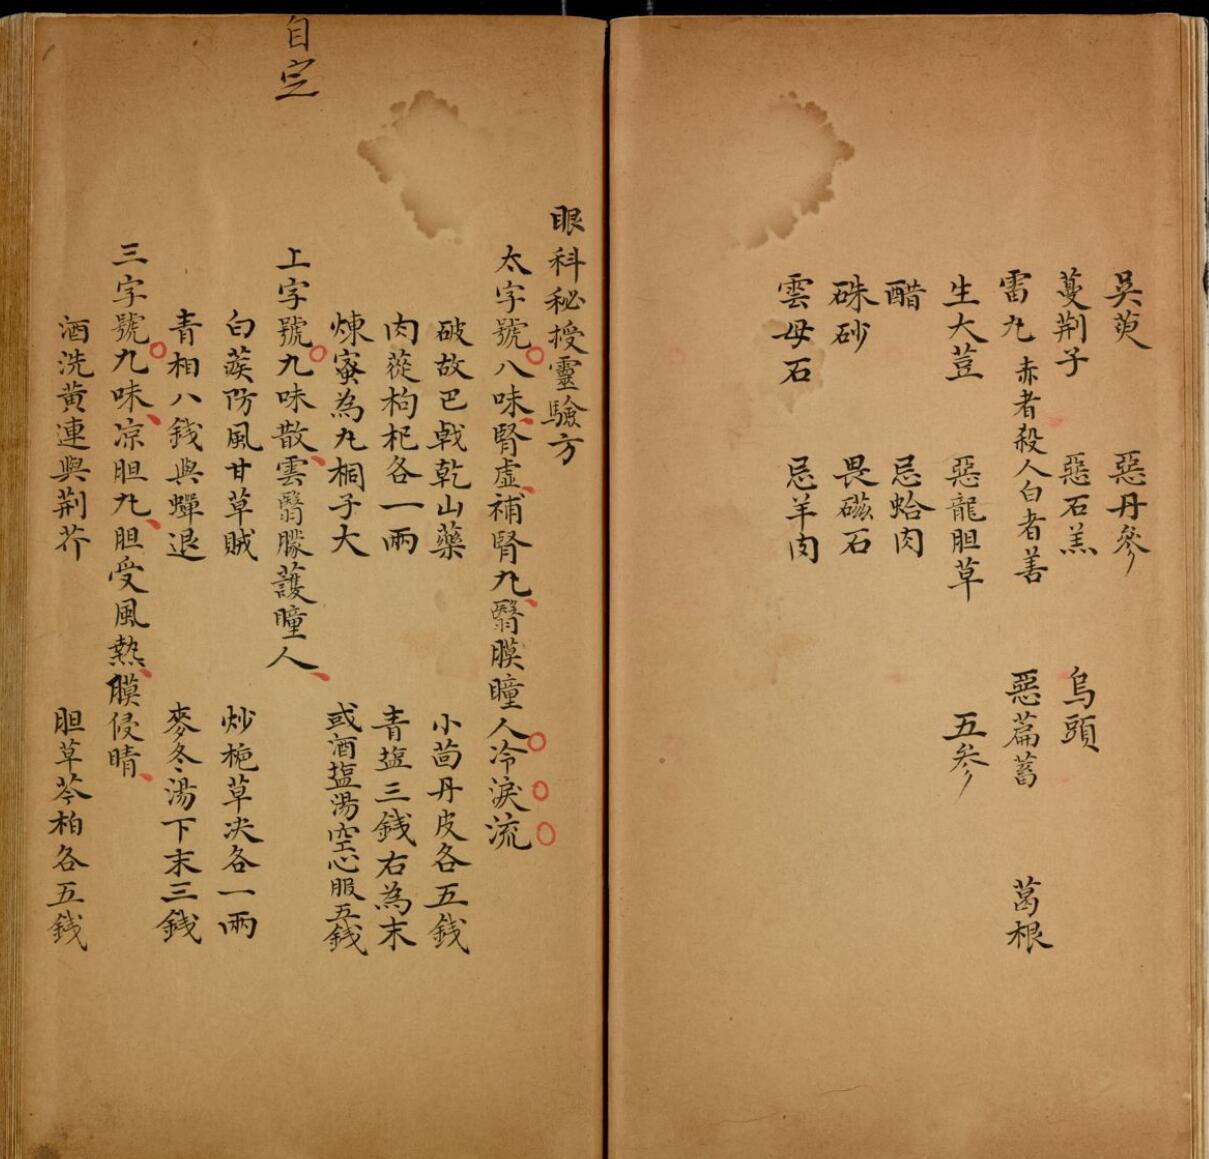 吳萸 惡丹參
蔓荆子 惡石羔 烏頭
雷丸 赤者殺人白者善 惡萹蓄 葛根
生大荳 惡龍胆草 五参
醋 忌蛤肉
硃砂 畏磁石
雲母石 忌羊肉
眼科秘授靈驗方
太字號八味腎虛補腎丸翳膜瞳人冷淚流
破故巴戟乾山藥 小茴丹皮各五錢
肉蓯枸杞各一兩 青塩三錢右為末
煉蜜為丸桐子大 或酒塩湯空心服五錢
自定
上字號九味散雲翳朦護瞳人
白蒺防風甘草賊 炒栀草决各一兩
青相八錢與蟬退 麥冬湯下末三錢
三字號九味凉胆丸胆受風熱膜侵睛
酒洗黃連與荆芥 胆草芩柏各五錢